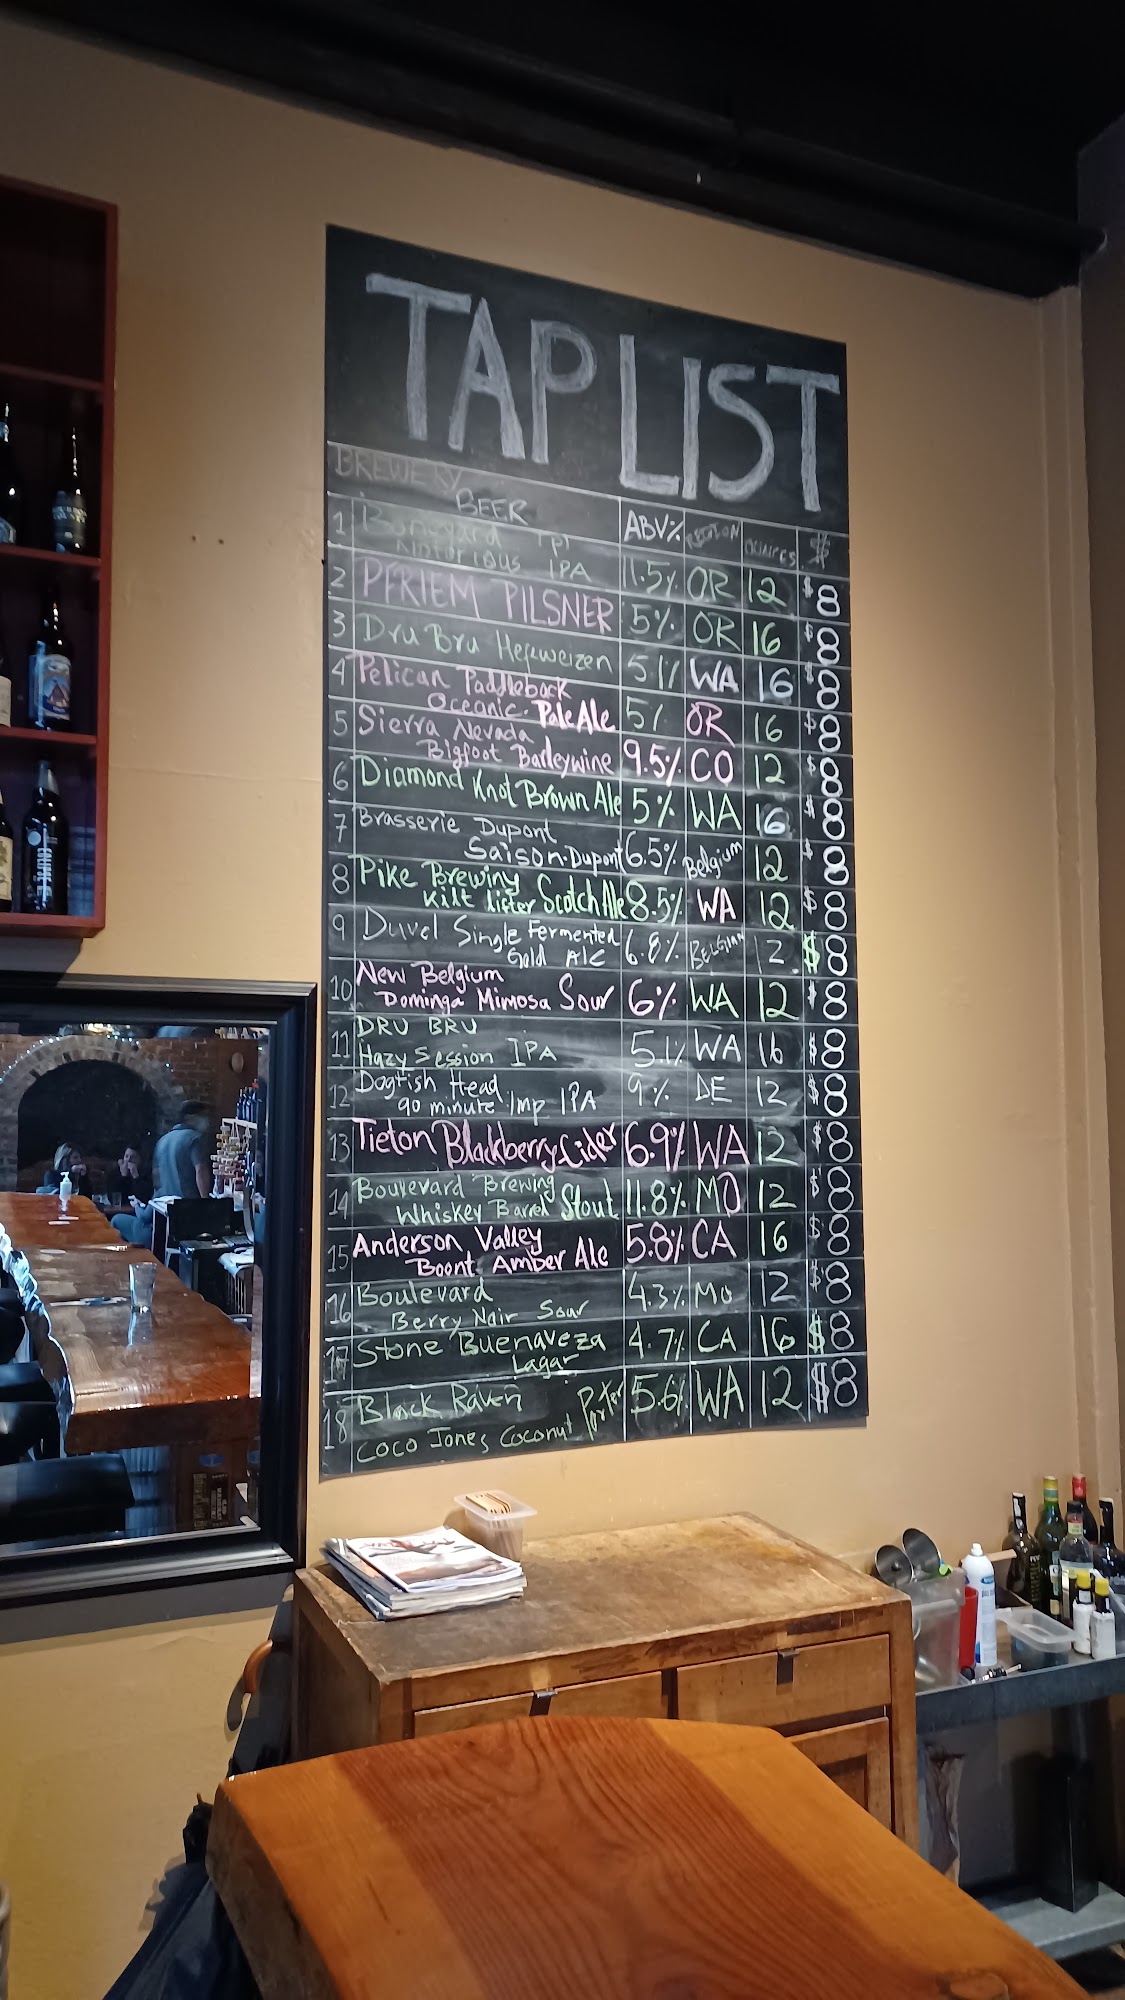 TAP LIST
BREWERY
BEER ABV% REGION OUNCES $
1 Boneyard
Notorious IPA 11.5% OR 12 $8
2 PFRIEM PILSNER 5% OR 16 $8
3 Dru Bru Hefeweizen 5.1% WA 16 $8
4 Pelican Paddleback
Oceanic Pale Ale 5% OR 16 $8
5 Sierra Nevada
Bigfoot Barleywine 9.5% CO 12 $8
6 Diamond Knot Brown Ale 5% WA 16 $8
7 Brasserie Dupont
Saison-Dupont 6.5% Belgium 12 $8
8 Pike Brewing
Kilt lifter Scotch Ale 8.5% WA 12 $8
9 Duvel Single Fermented
Gold Ale 6.8% BELGIAN 12 $8
10 New Belgium
Dominga Mimosa Sour 6% WA 12 $8
11 DRU BRU
Hazy Session IPA 5.1% WA 16 $8
12 Dogfish Head
90 minute Imp IPA 9% DE 12 $8
13 Tieton Blackberry Cider 6.9% WA 12 $8
14 Boulevard Brewing
Whiskey Barrel Stout 11.8% MO 12 $8
15 Anderson Valley
Boont Amber Ale 5.8% CA 16 $8
16 Boulevard
Berry Noir Sour 4.3% Mo 12 $8
17 Stone Buenaveza
Lagar 4.7% CA 16 $8
18 Black Raven
Coco Jones Coconut Porter 5.6% WA 12 $8